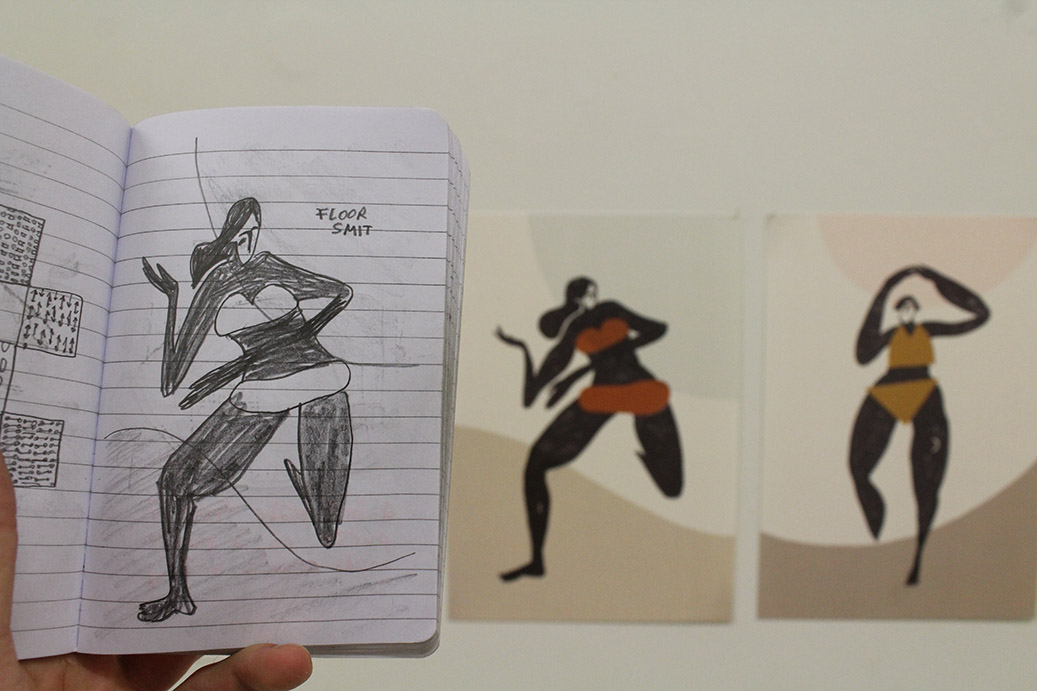 FLOOR
SMIT